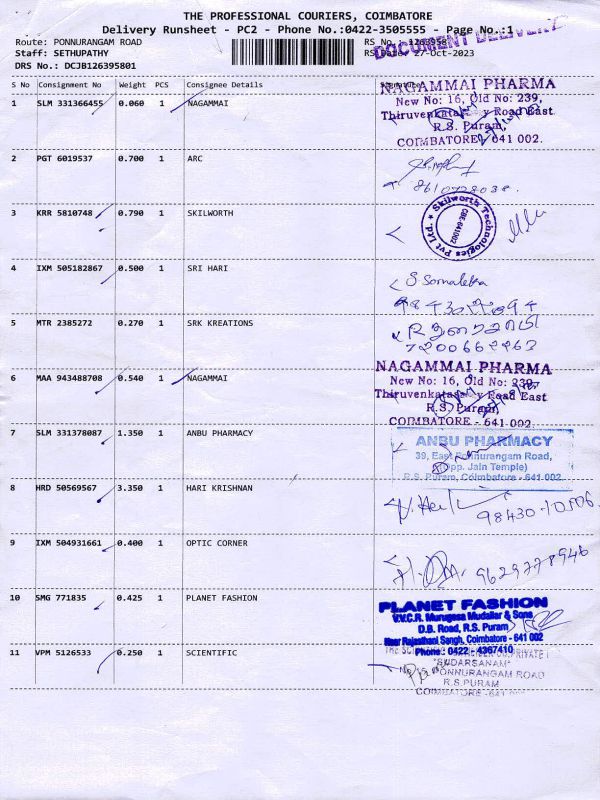 THE PROFESSIONAL COURIERS, COIMBATORE
Delivery Runsheet - PC2 - Phone No.:0422-3505555 - Page No.:1
DOCUMENT DELIVERY
Route: PONNURANGAM ROAD
RS No.: 1263958
Staff: SETHUPATHY
RS Date: 27-Oct-2023
DRS No.: DCJB126395801
S No Consignment No Weight PCS Consignee Details Signature
1 SLM 331366455 0.060 1 NAGAMMAI
NAGAMMAI PHARMA
New No: 16, Old No: 239,
Thiruvenkatasamy Road East
R.S. Puram,
COIMBATORE - 641 002.
2 PGT 6019537 0.700 1 ARC
3 KRR 5810748 0.790 1 SKILWORTH
Skilworth Technologies Pvt Ltd.
CBE-641002
4 IXM 505182867 0.500 1 SRI HARI
5 MTR 2385272 0.270 1 SRK KREATIONS
7200662963
6 MAA 943488708 0.540 1 NAGAMMAI
NAGAMMAI PHARMA
New No: 16, Old No: 239,
Thiruvenkatasamy Road East
R.S. Puram,
COIMBATORE - 641 002.
7 SLM 331378087 1.350 1 ANBU PHARMACY
ANBU PHARMACY
39, East Ponnurangam Road,
(Opp. Jain Temple)
R.S. Puram, Coimbatore - 641 002
8 HRD 50569567 3.350 1 HARI KRISHNAN
98430-10506
9 IXM 504931661 0.400 1 OPTIC CORNER
9629778946
10 SMG 771835 0.425 1 PLANET FASHION
PLANET FASHION
V.V.C.R. Murugesa Mudaliar & Sons
D.B. Road, R.S. Puram
Near Rajasthani Sangh, Coimbatore - 641 002
Phone: 0422 - 4367410
11 VPM 5126533 0.250 1 SCIENTIFIC
"SUDARSANAM"
PONNURANGAM ROAD
R.S.PURAM
COIMBATORE -641